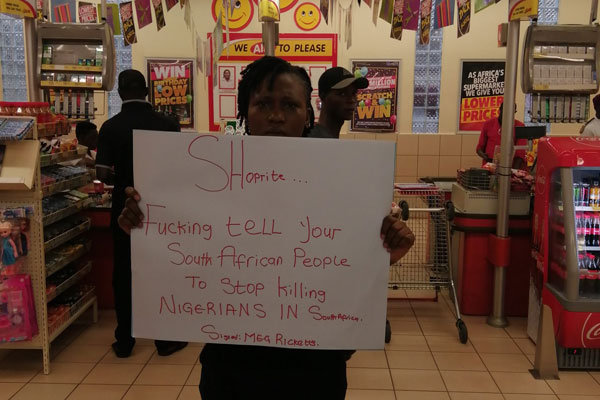 WE AIM TO PLEASE
WIN
LOW
PRICES
WIN
AS AFRICA'S
BIGGEST
SUPERMARKET
WE GIVE YOU
LOWER
PRICES
SHoprite ...
Fucking tell your
South African People
To Stop killing
NIGERIANS IN South Africa.
Signed: MEG Ricketts.